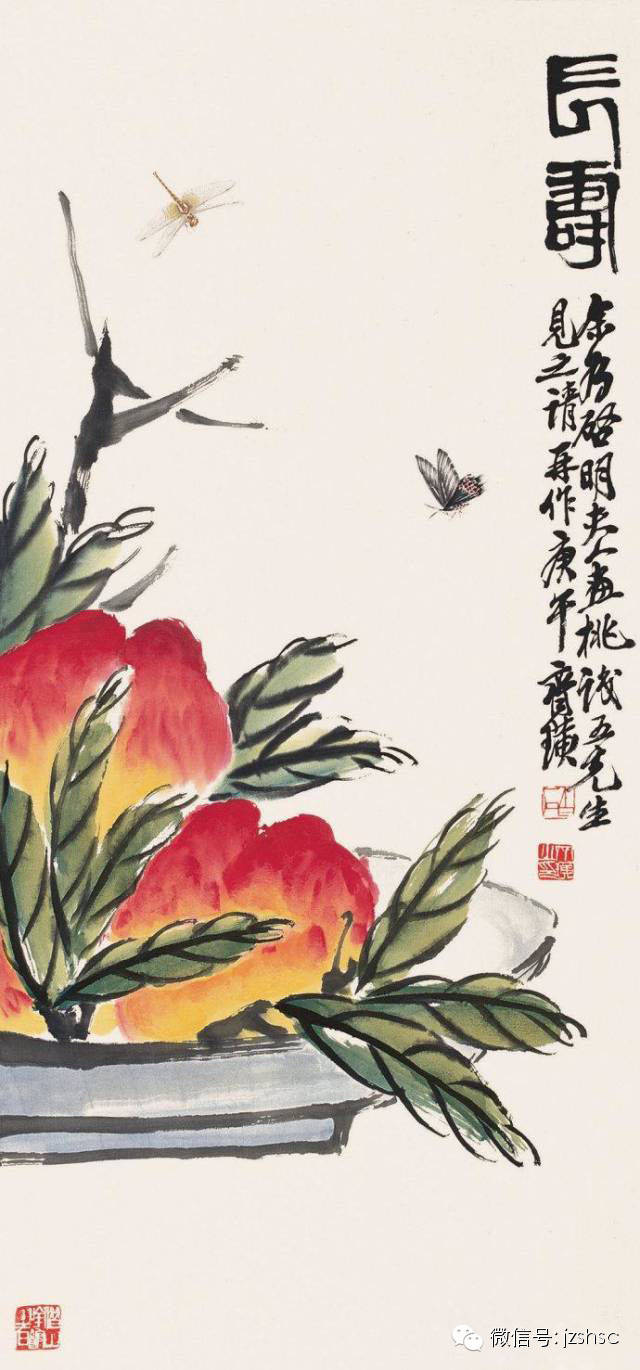 長壽
余為啓明夫人畫桃五先生
見之請再作庚午齊璜
微信号: jzshsc